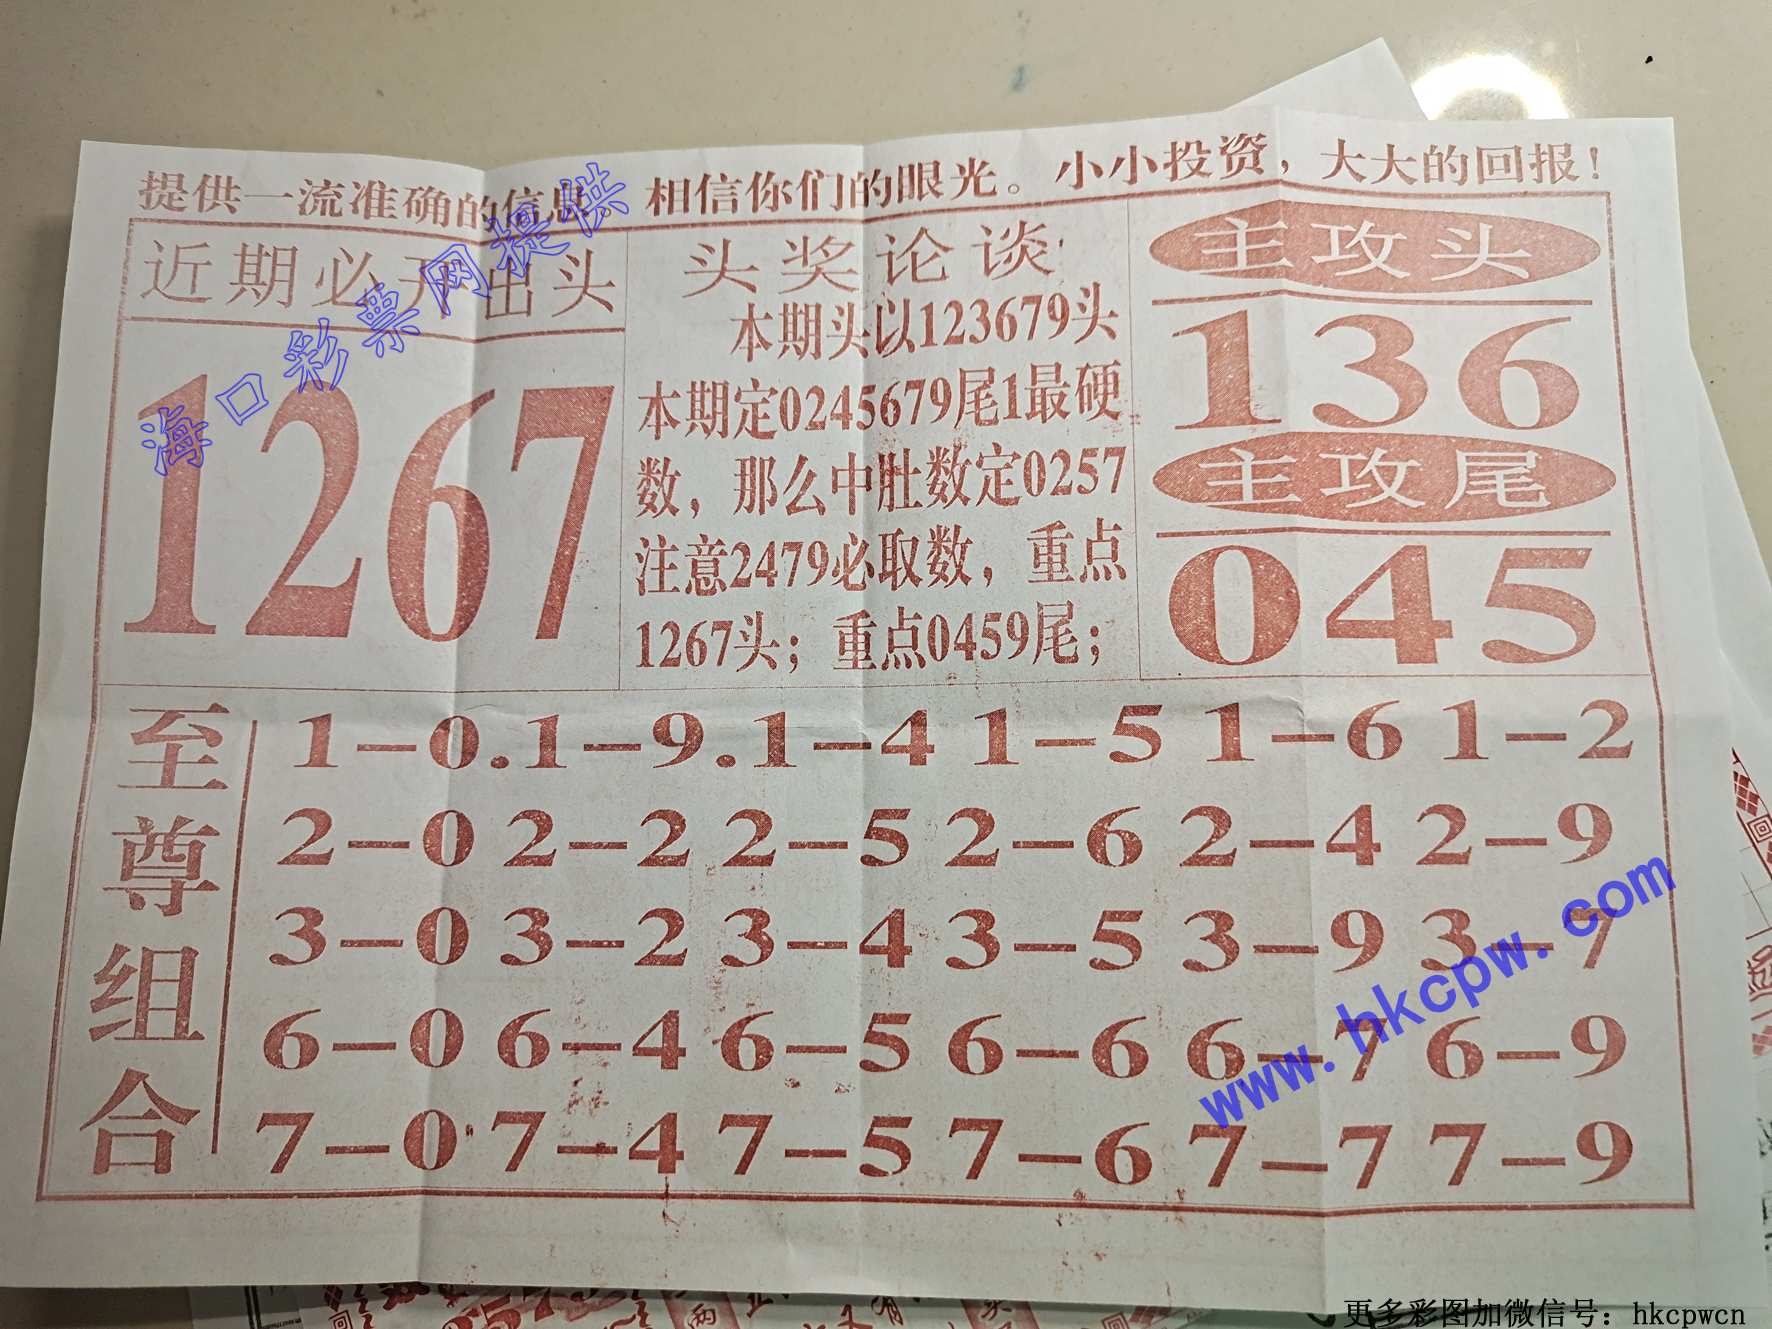 提供一流准确的信息。相信你们的眼光。小小投资，大大的回报！
近期必开出头
1267
头奖论谈
本期头以123679头
本期定0245679尾1最硬
数，那么中肚数定0257
注意2479必取数，重点
1267头；重点0459尾；
主攻头
136
主攻尾
045
至尊组合
1－0.1－9.1－4 1－5 1－6 1－2
2－0 2－2 2－5 2－6 2－4 2－9
3－0 3－2 3－4 3－5 3－9 3－7
6－0 6－4 6－5 6－6 6－7 6－9
7－0 7－4 7－5 7－6 7－7 7－9
海口彩票网提供
www.hkcpw.com
更多彩图加微信号：hkcpwcn